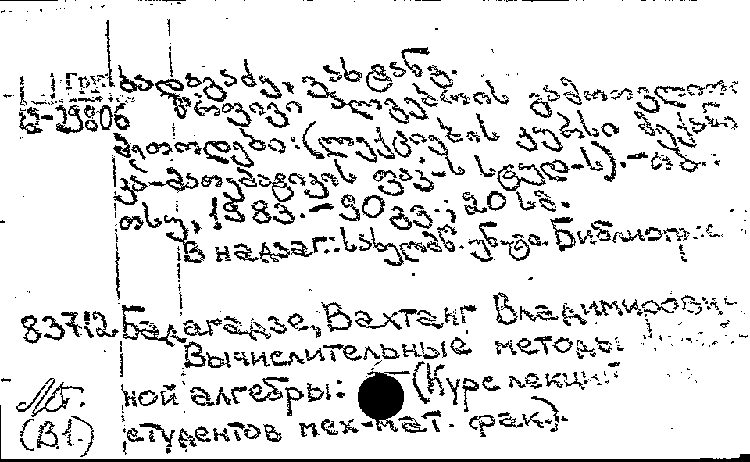 Груз ბადაგაძე, ვახტანგ.
2-29806 წრფივი ალგებრის გამოთვლითი
მეთოდები: (ლექციების კურსი მექანი
კა-მათემატიკის ფაკ-ს სტუდ-ს).-თბ.:
თსუ, 1983.-90 გვ.; 20 სმ.
В надзаг.: სახელმწ. უნ-ტი. Библиогр.: с
83712 Бадагадзе, Вахтанг Владимирович
Вычислительные методы
ной алгебры: (Курс лекций
студентов мех-мат. фак.).
(В1.)